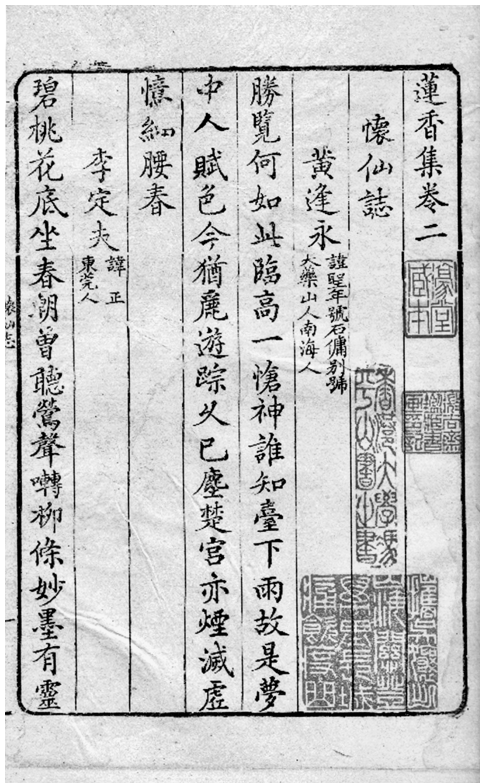 蓮香集卷二
懷仙誌
黃逢永
諱聖年號石傭別號
大藥山人南海人
勝覽何如此臨高一愴神誰知臺下雨故是夢
中人賦色今猶麗遊踪久已塵楚宮亦煙滅虛
憶細腰春
李定夫
諱正
東莞人
碧桃花底坐春朝曾聽鶯聲囀柳條妙墨有靈
懷仙志
一